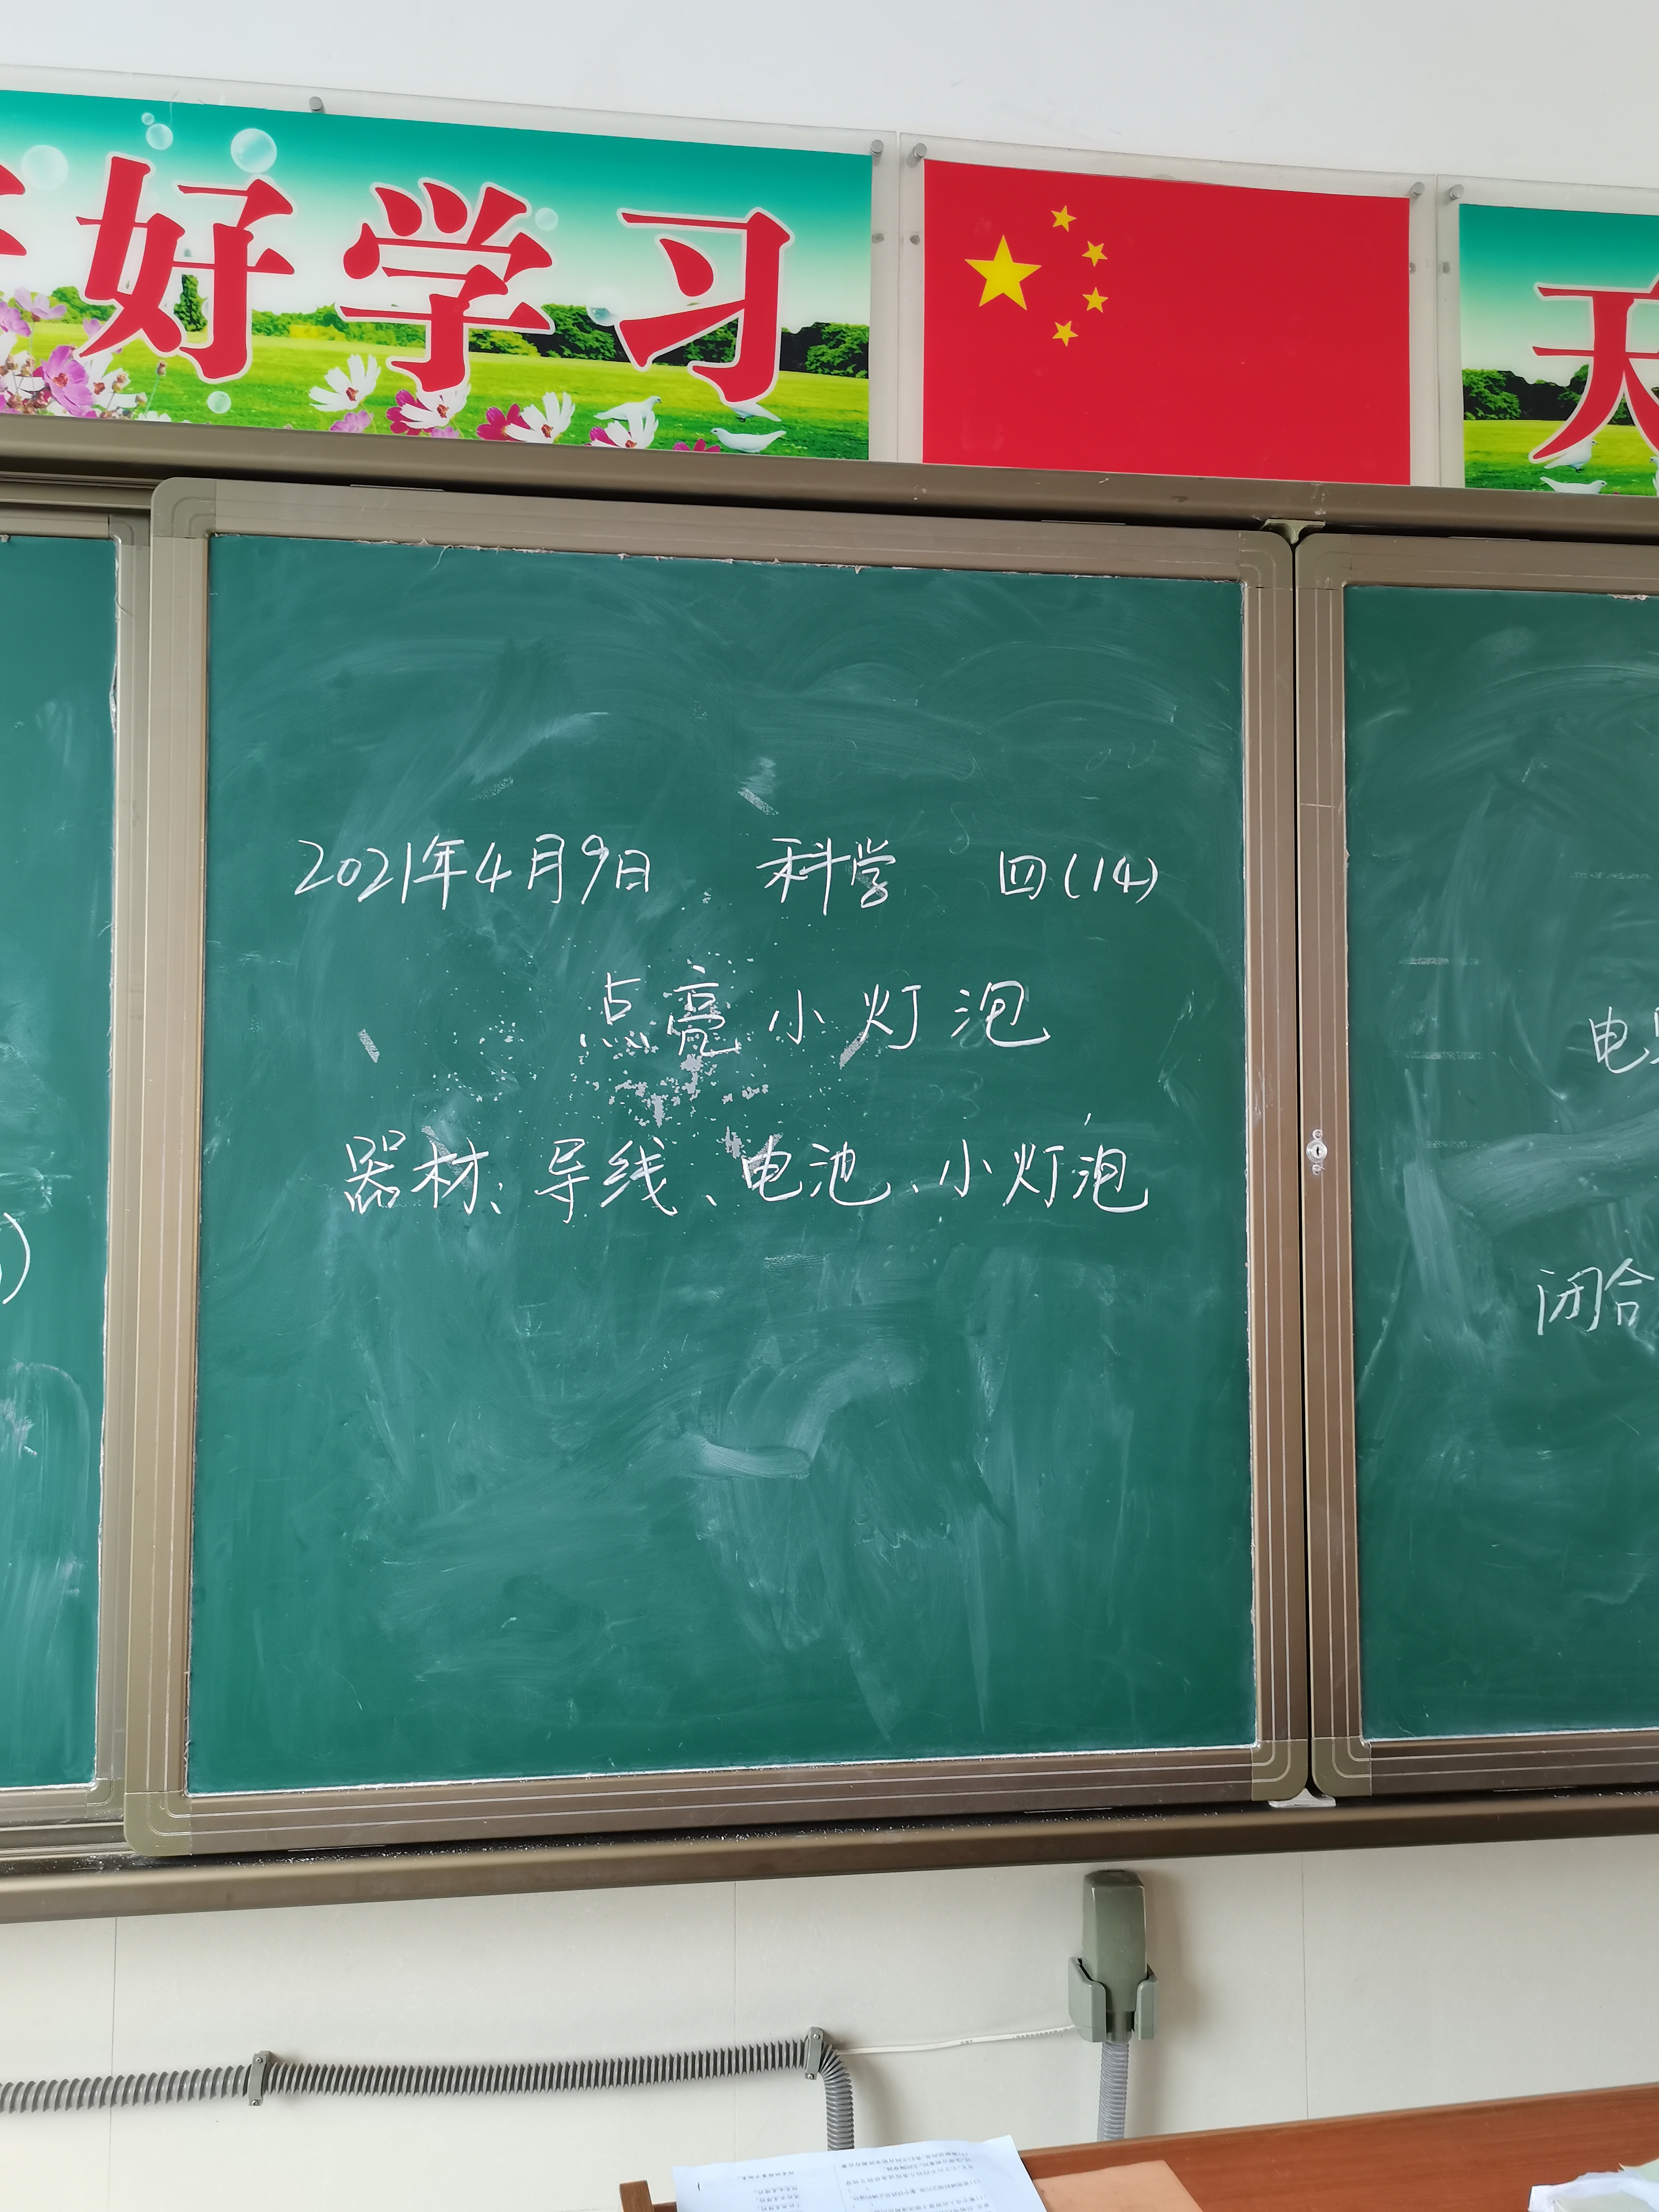 好学习
天
2021年4月9日 科学 四(14)
点亮小灯泡
器材、导线、电池、小灯泡
电
闭合